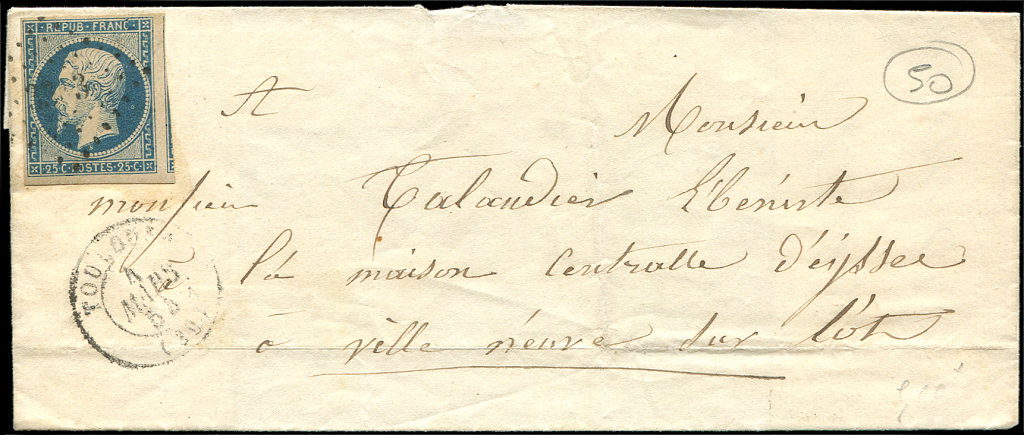 REPUB·FRANC·
25·C·POSTES·25·C·
50
A Monsieur
monsieur Talandier Ebéniste
à la maison centralle d'éyssee
à ville néuve sur lòt
TOULOUSE
4
MARS
54
(30)